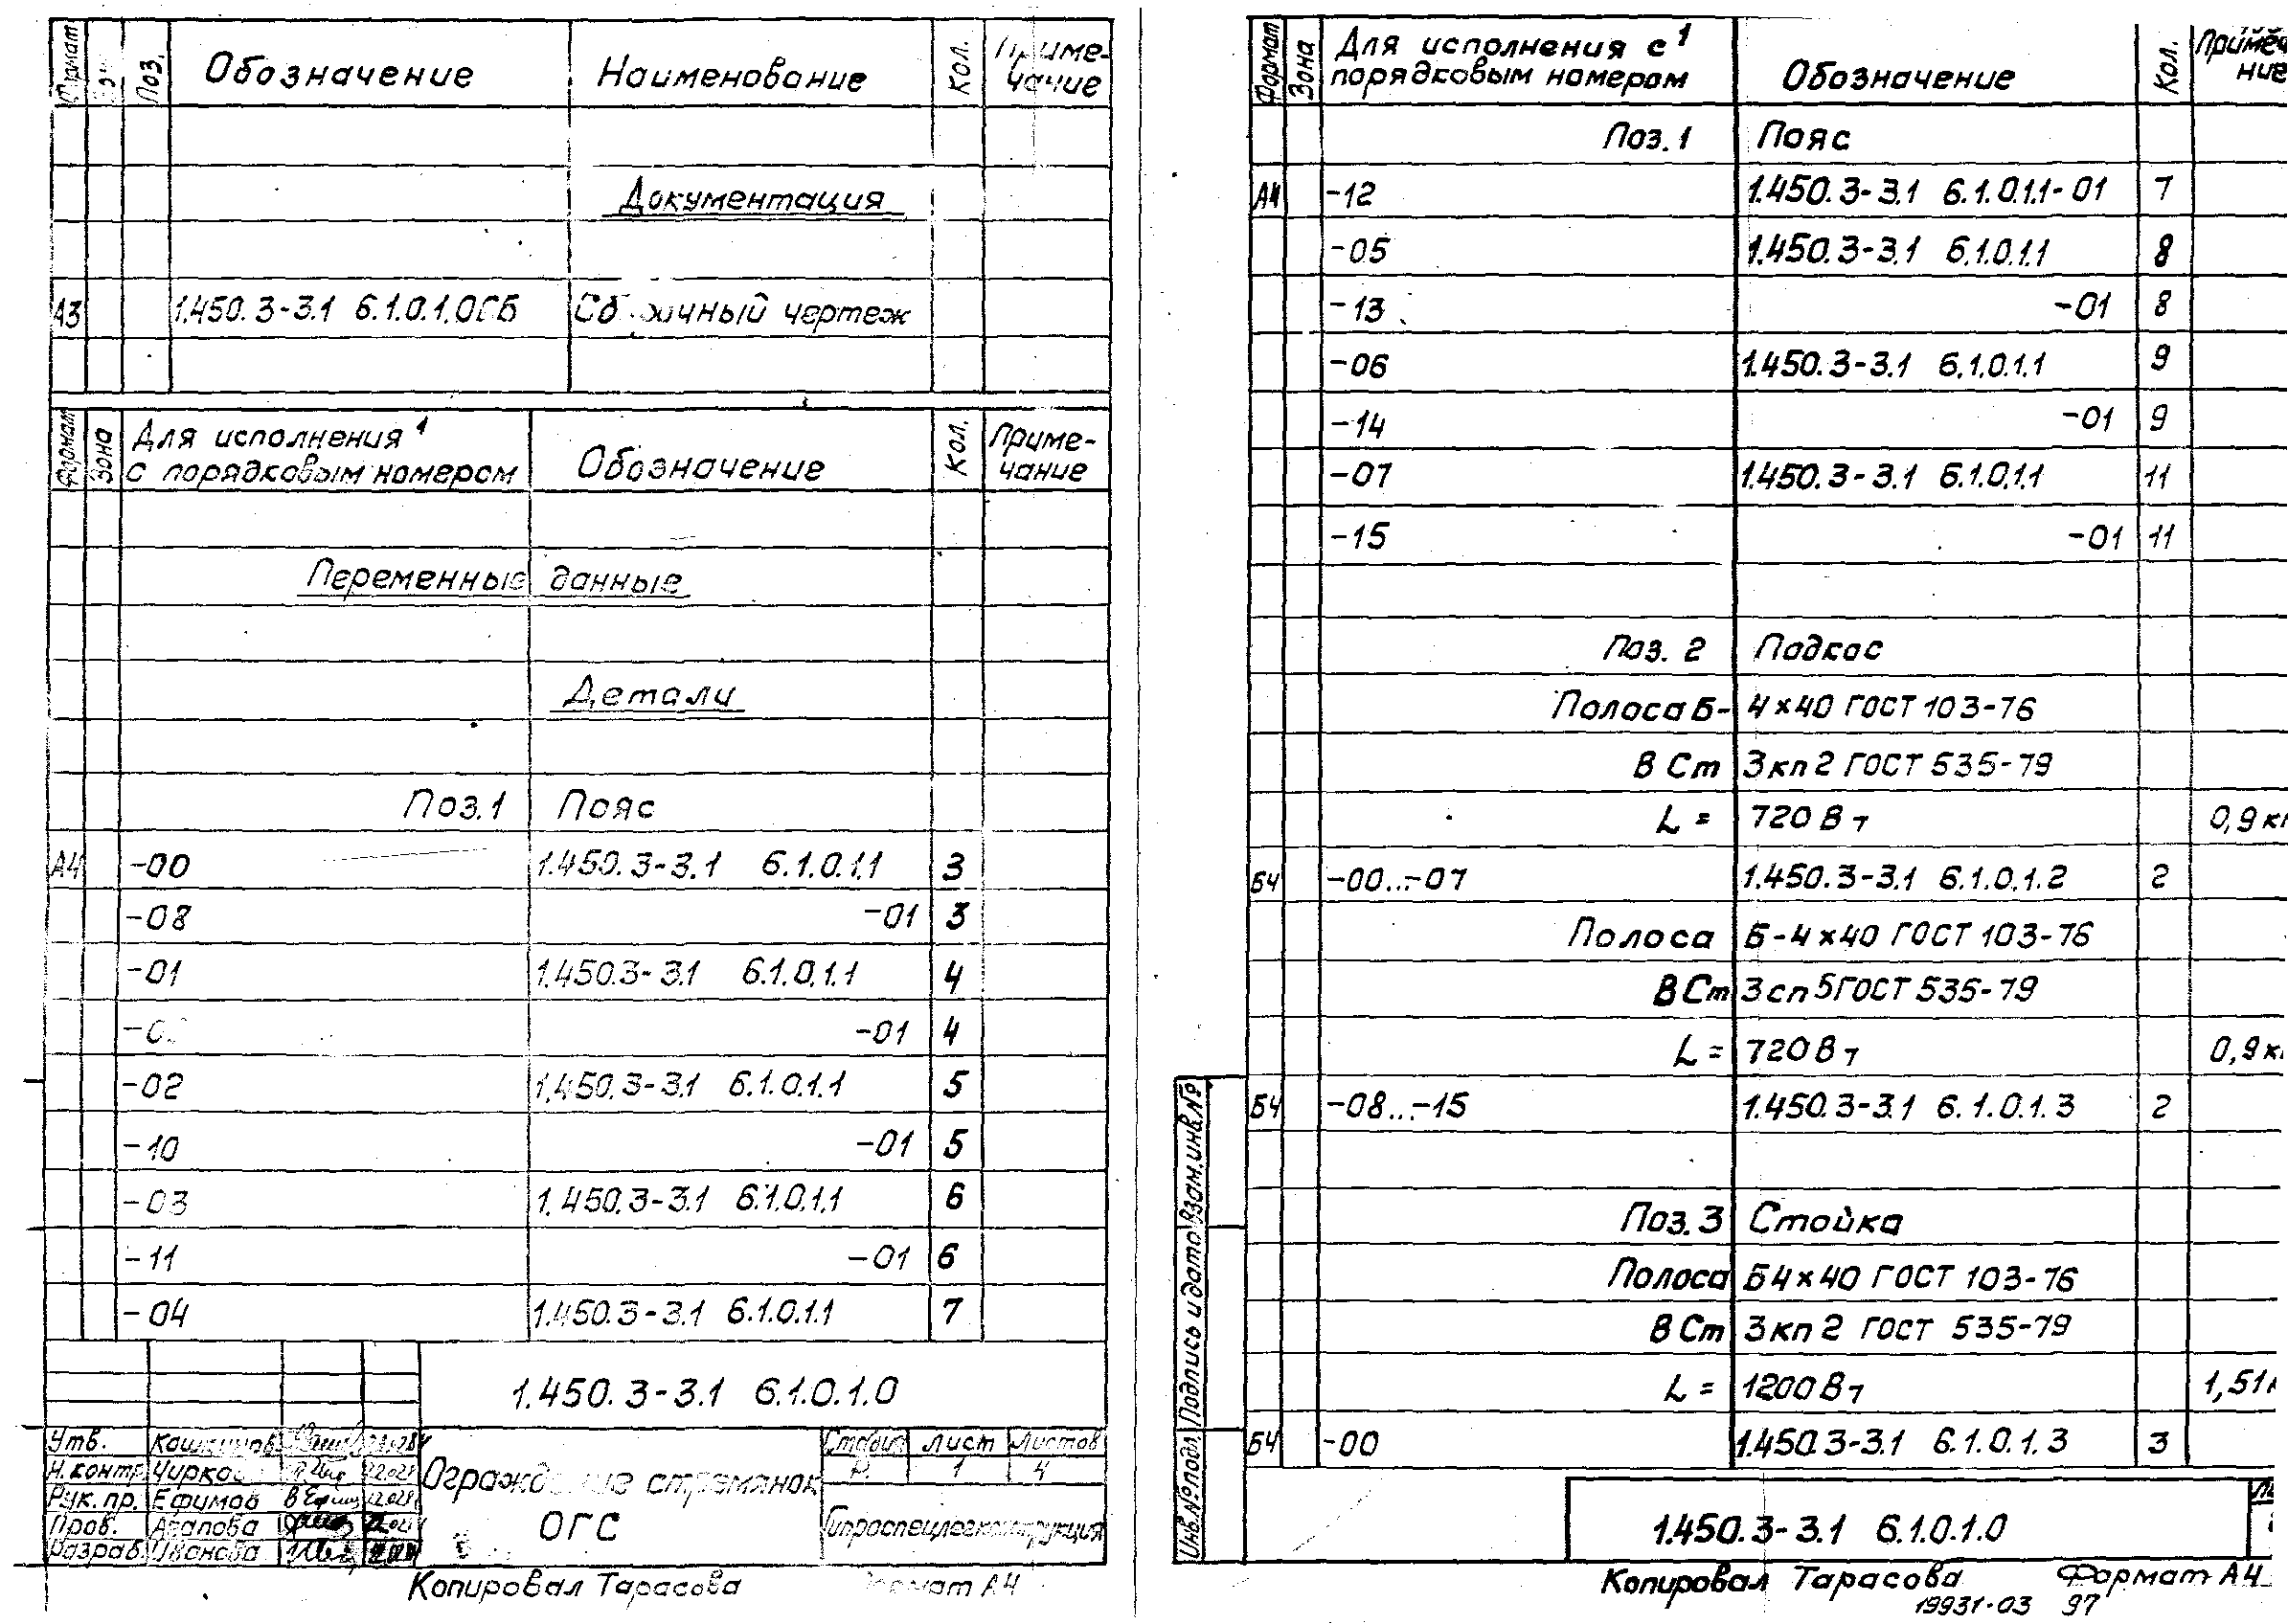 Формат Поз. Обозначение Наименование Кол. Приме-
чание
Документация
А3 1.450.3-3.1 6.1.0.1.0СБ Сборочный чертеж
Формат Зона Для исполнения¹ Обозначение Кол. Приме-
с порядковым номером чание
Переменные данные
Детали
Поз.1 Пояс
А4 -00 1.450.3-3.1 6.1.0.1.1 3
-08 -01 3
-01 1.450.3-3.1 6.1.0.1.1 4
-01 4
-02 1.450.3-3.1 6.1.0.1.1 5
-10 -01 5
-03 1.450.3-3.1 6.1.0.1.1 6
-11 -01 6
-04 1.450.3-3.1 6.1.0.1.1 7
1.450.3-3.1 6.1.0.1.0
Утв.
Н.контр.
Рук.пр. Ефимов
Пров. Агапова
Разраб. Иванова
Ограждение стремянок
ОГС
Стадия Лист Листов
Р 1 4
Гипроспецлегконструкция
Копировал Тарасова Формат А4
Формат Зона Для исполнения с¹ Обозначение Кол. Примеча
порядковым номером ние
Поз.1 Пояс
А4 -12 1.450.3-3.1 6.1.0.1.1-01 7
-05 1.450.3-3.1 6.1.0.1.1 8
-13 -01 8
-06 1.450.3-3.1 6.1.0.1.1 9
-14 -01 9
-07 1.450.3-3.1 6.1.0.1.1 11
-15 -01 11
Поз. 2 Подкос
Полоса Б- 4×40 ГОСТ 103-76
В Ст 3кп2 ГОСТ 535-79
L = 720 Вт 0,9 кг
БЧ -00...-07 1.450.3-3.1 6.1.0.1.2 2
Полоса Б-4×40 ГОСТ 103-76
В Ст 3сп5 ГОСТ 535-79
L = 720 Вт 0,9 к
БЧ -08...-15 1.450.3-3.1 6.1.0.1.3 2
Поз.3 Стойка
Полоса Б4×40 ГОСТ 103-76
В Ст 3кп2 ГОСТ 535-79
L = 1200 Вт 1,51к
БЧ -00 1.450.3-3.1 6.1.0.1.3 3
Инв.№подл. Подпись и дата Взам.инв.№
1.450.3-3.1 6.1.0.1.0
Копировал Тарасова Формат А4
19931-03 97